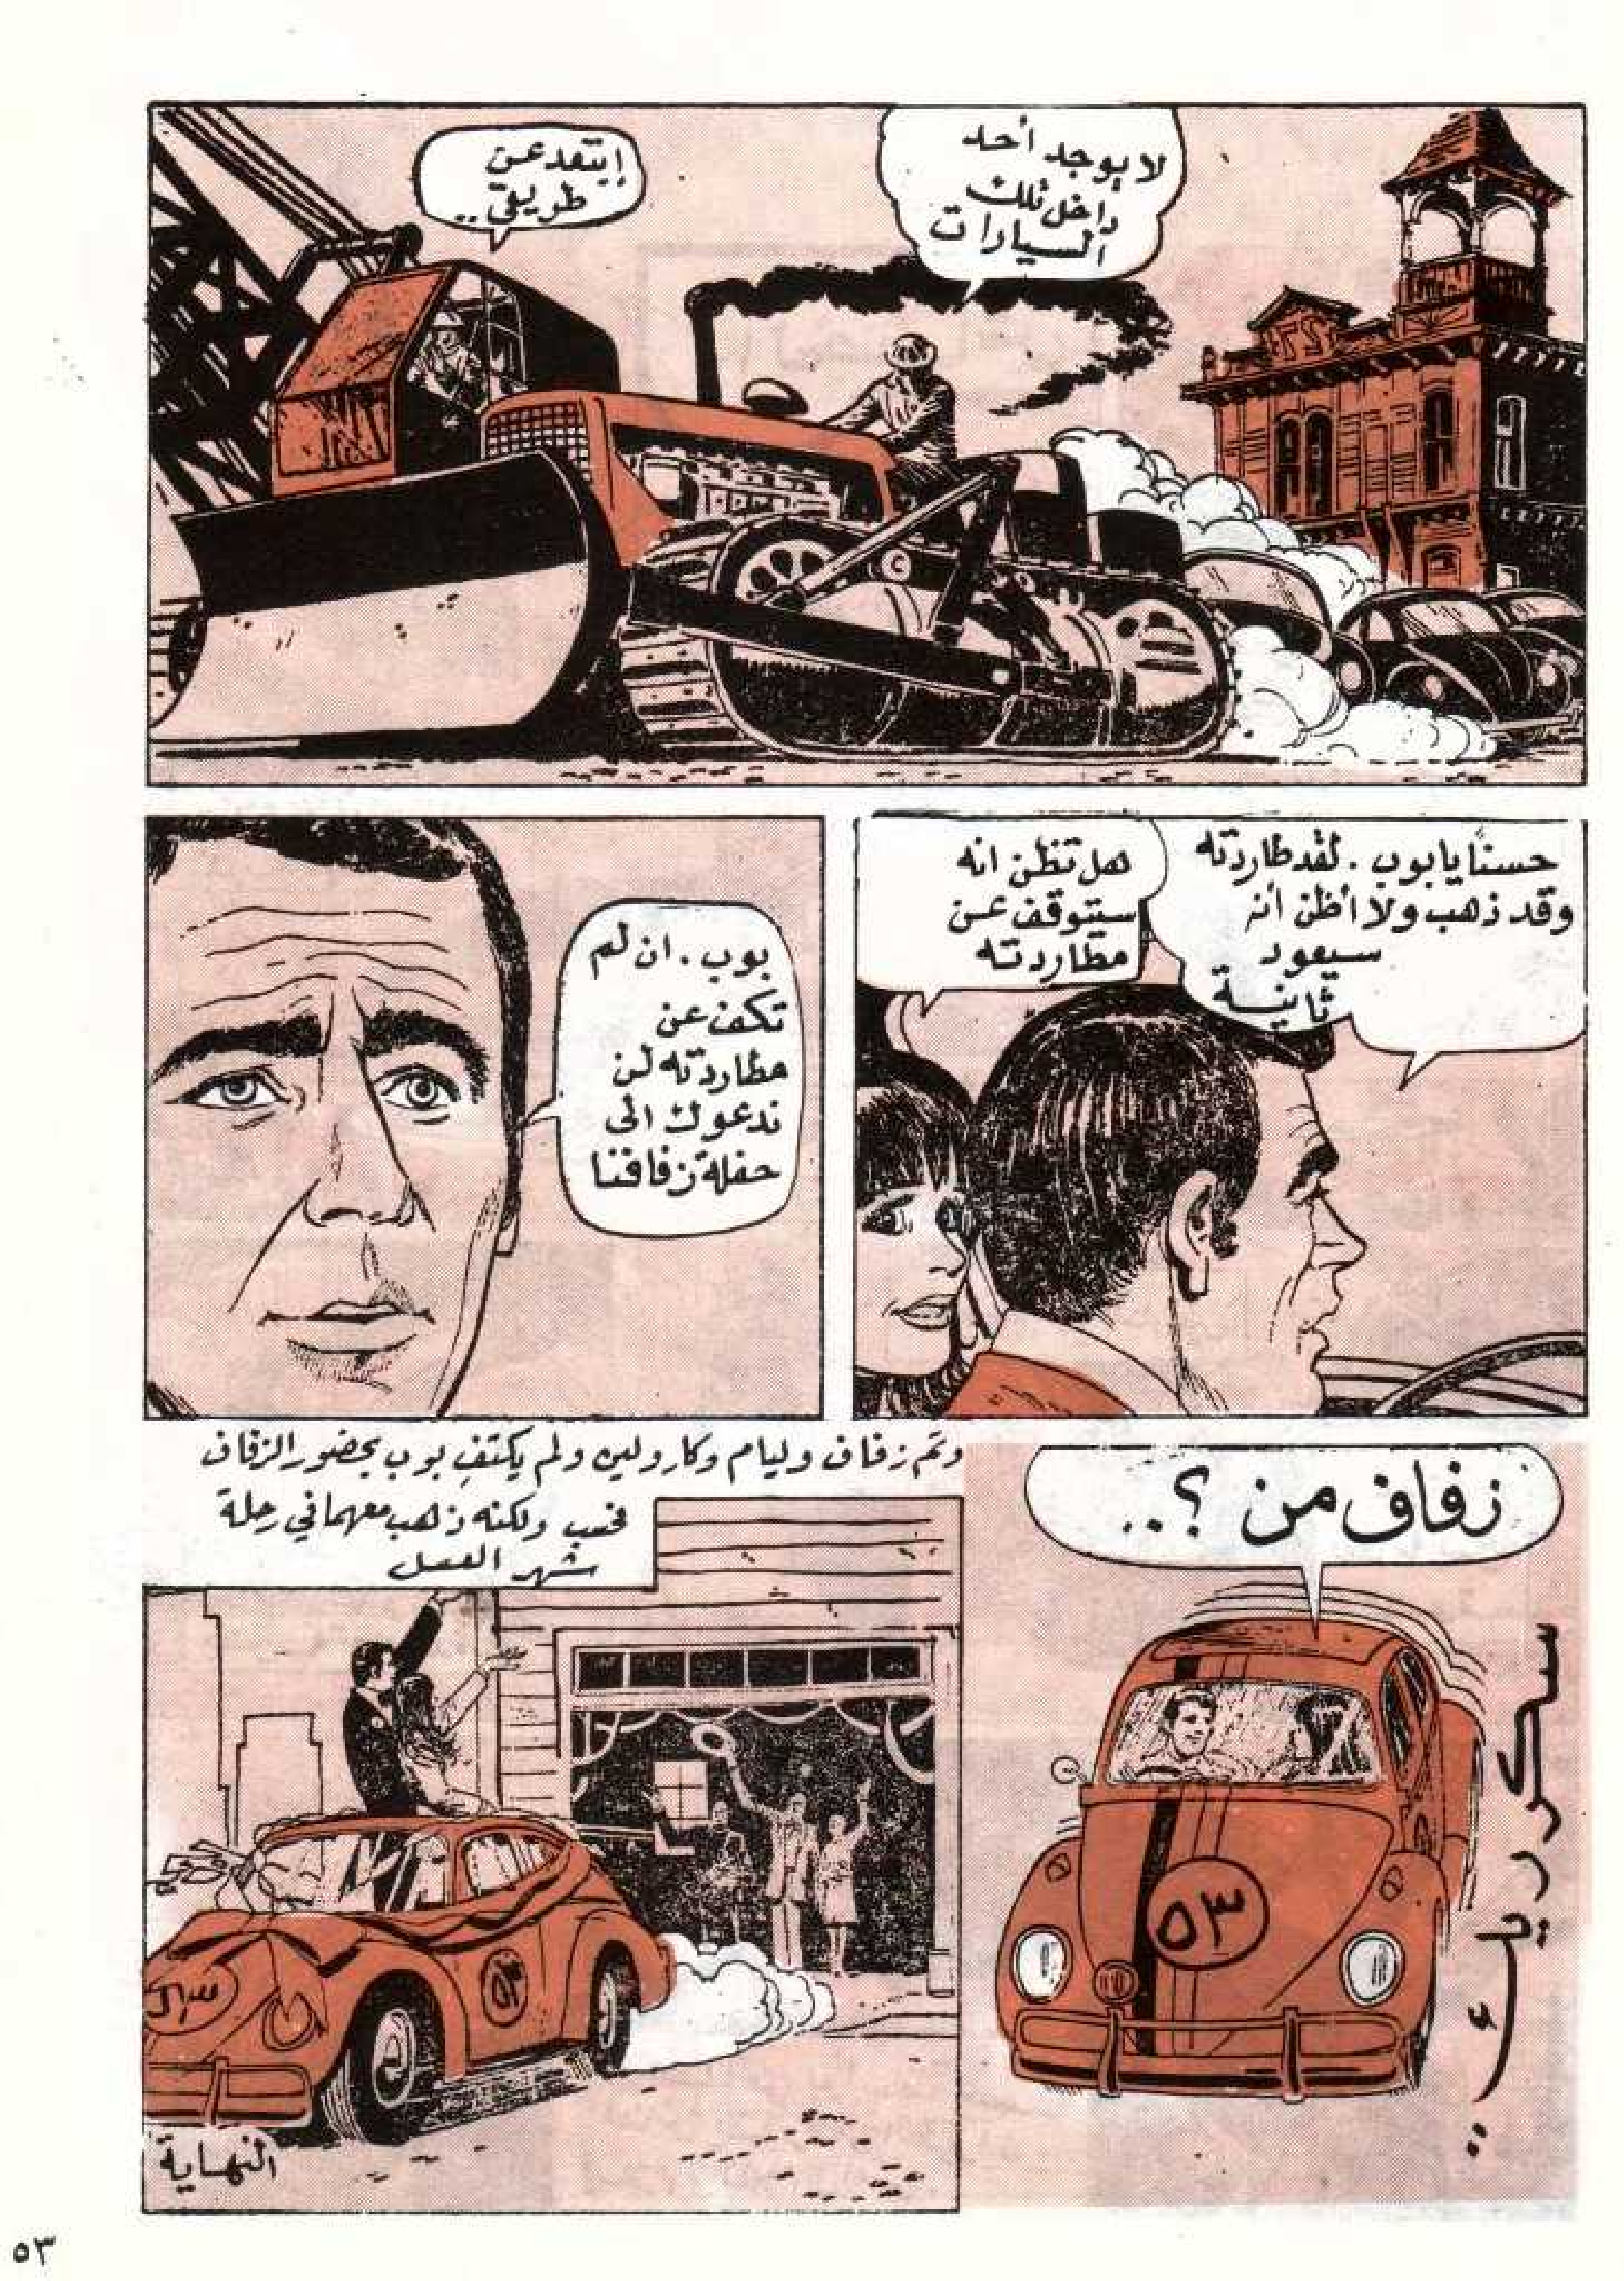 لا يوجد أحد
داخل تلك
السيارات
إبتعد عن
طريقي..
حسنًا يا بوب . لقد طاردته
وقد ذهب ولا أظن أنه
سيعود
ثانية
هل تظن انه
سيتوقف عن
مطاردته
بوب . ان لم
تكف عن
مطاردته لن
ندعوك الى
حفلة زفافنا
زفاف من ؟..
٥٣
وتم زفاف وليام وكارولين ولم يكتفِ بوب بحضور الزفاف
فحسب ولكنه ذهب معهما في رحلة
شهر العسل
٥٣
٥٣
النهاية
٥٣